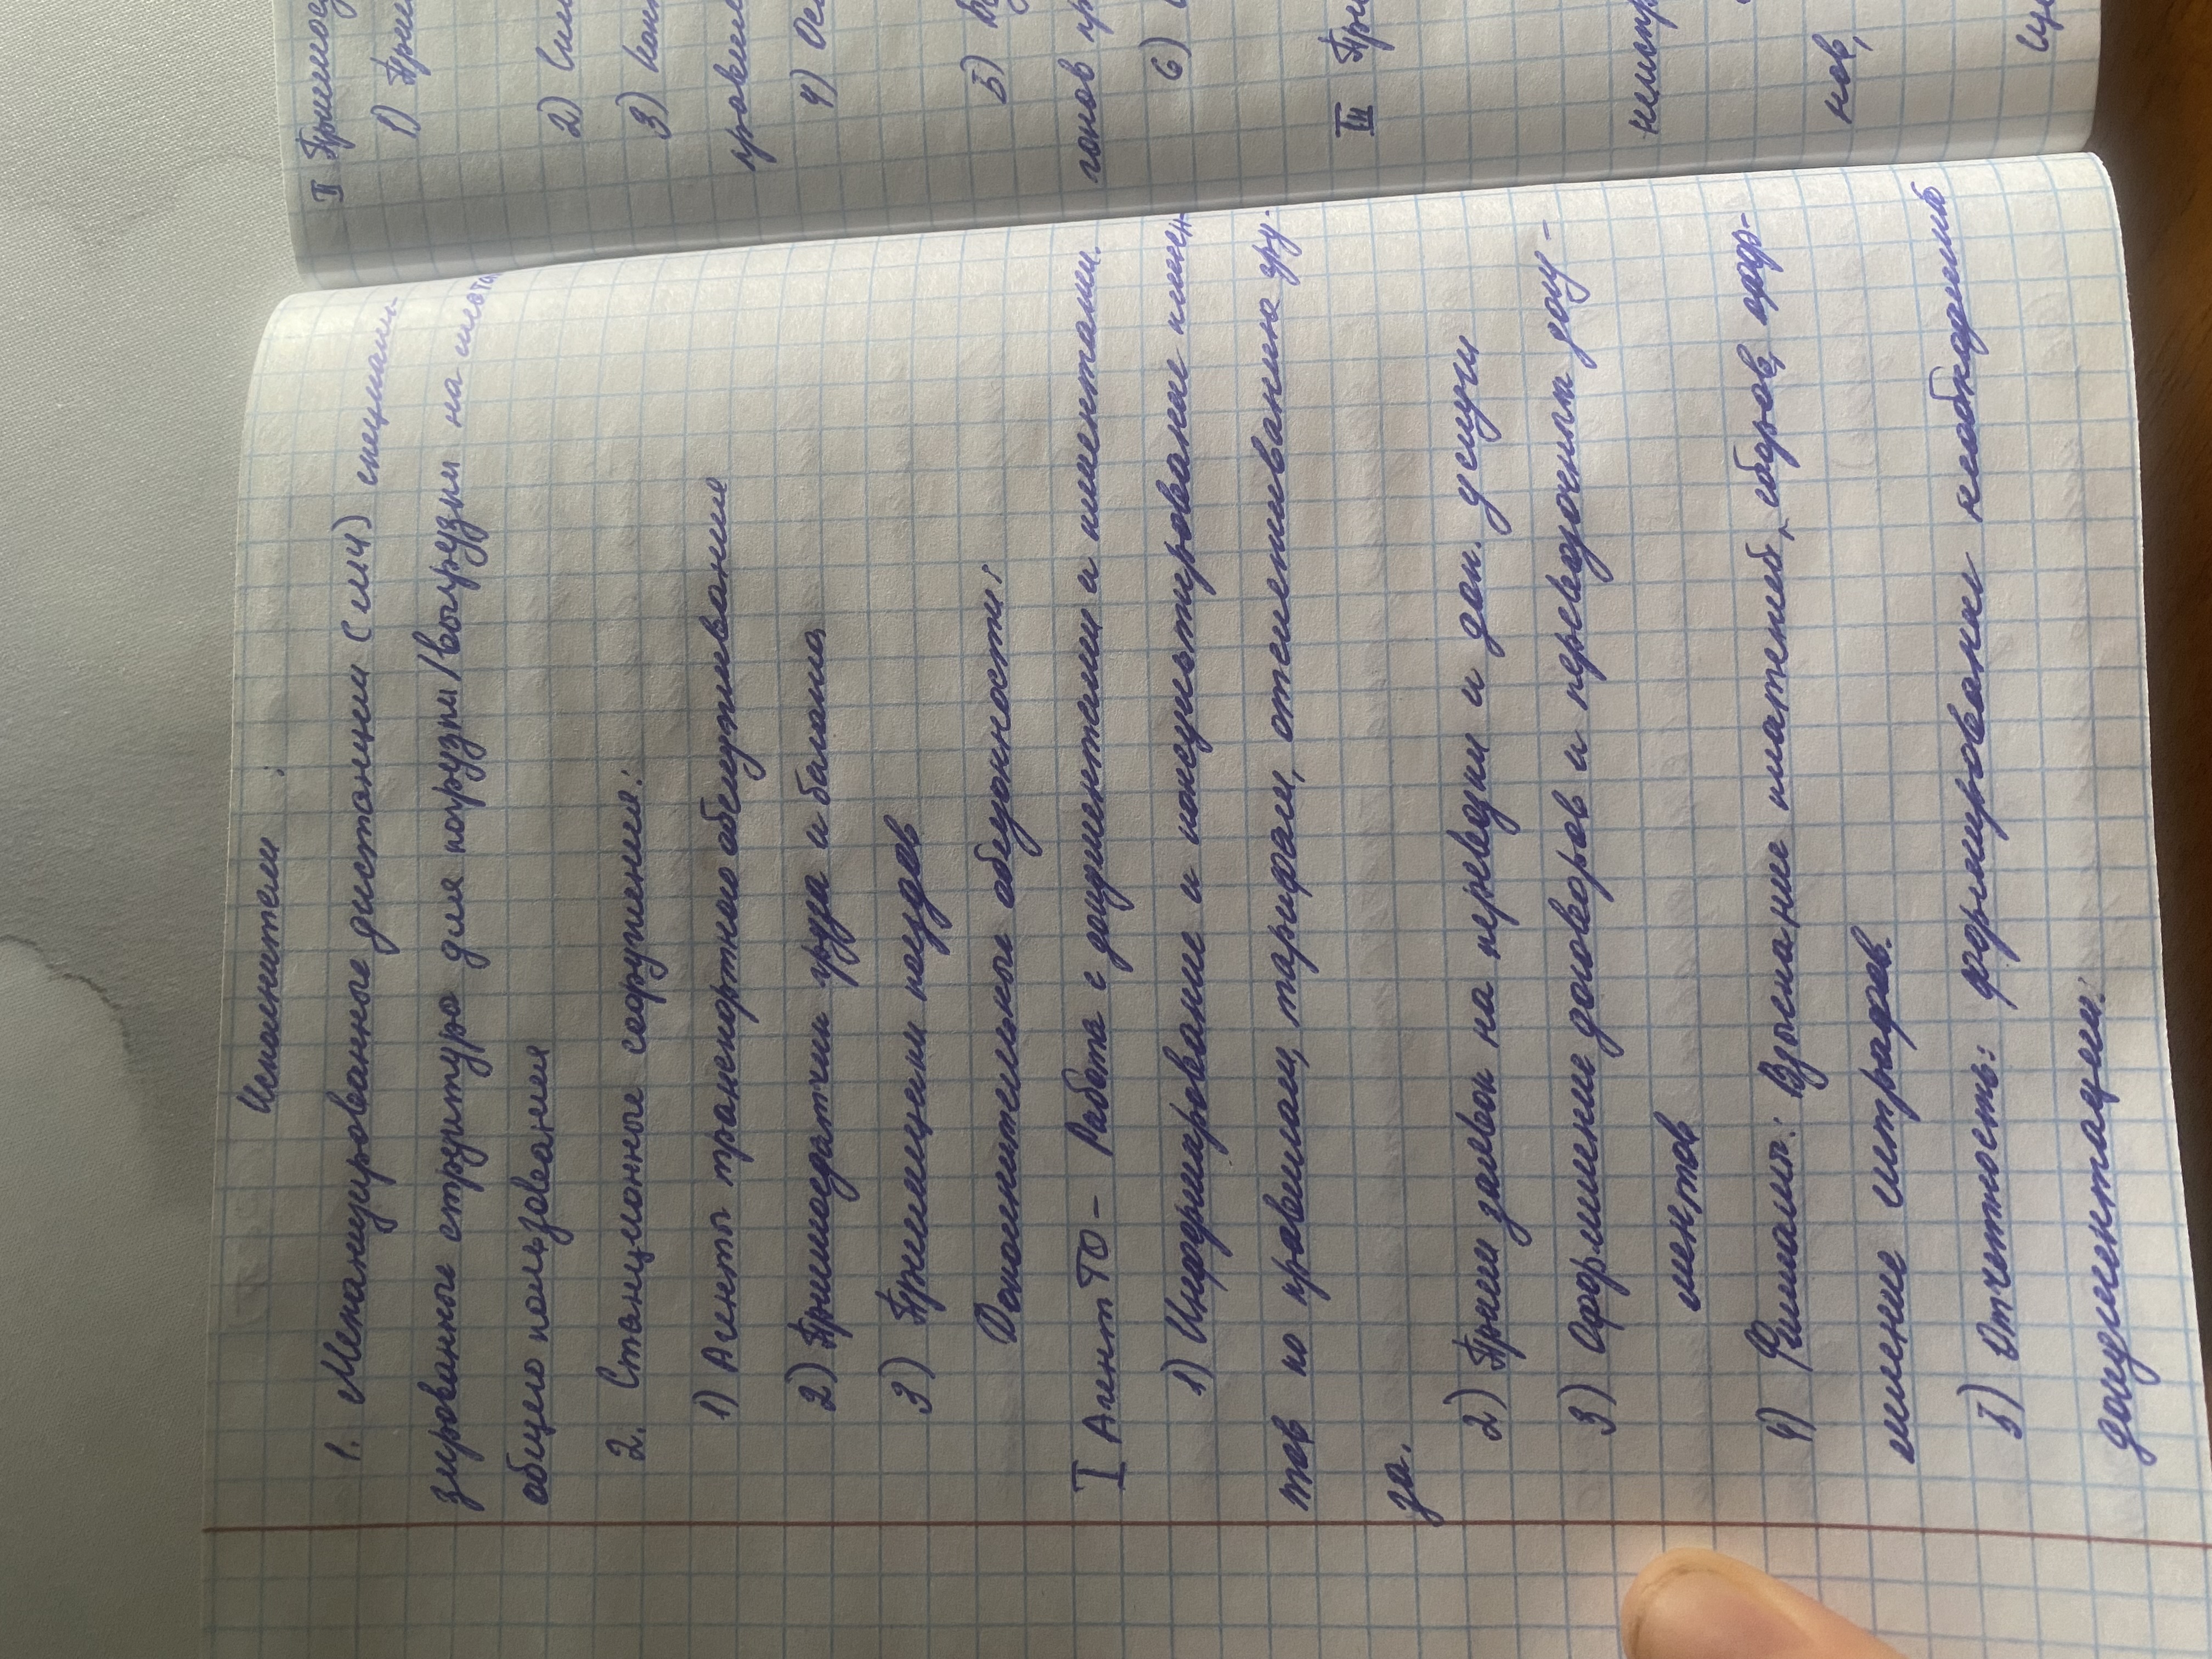 Исполнители:
1. Механизированные дистанции (МЧ) специали-
зированные структура для погрузки/выгрузки на местах
общего пользования
2. Станционные сооружения:
1) Агенты транспортного обслуживания
2) Приемосдатчик груза и багажа
3) Приемщики поездов
Дополнительные обязанности:
I Агент ТО - Работа с документами и клиентами.
1) Информирование и консультирование клиен-
тов по правилам, тарифам, отслеживанию гру-
за.
2) Прием заявок на перевозки и доп. услуги
3) Оформление договоров и перевозочных доку-
ментов
4) Финансы: Взыскание платежей, сборов, оформ-
ление штрафов.
5) Отчетность: формирование необходимой
документации.
II Приемосд
1) Прие
2)
3)
4)
5)
6)
III При
нов,